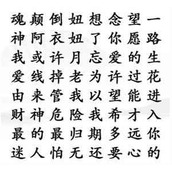 魂颠倒妞想念望一
神阿衣妞了你愿路
我或许月忘爱的生
爱线掉老为许过花
由来管我以望能进
财神危险我希才入
最的最归期多远你
迷人怕无还要心的